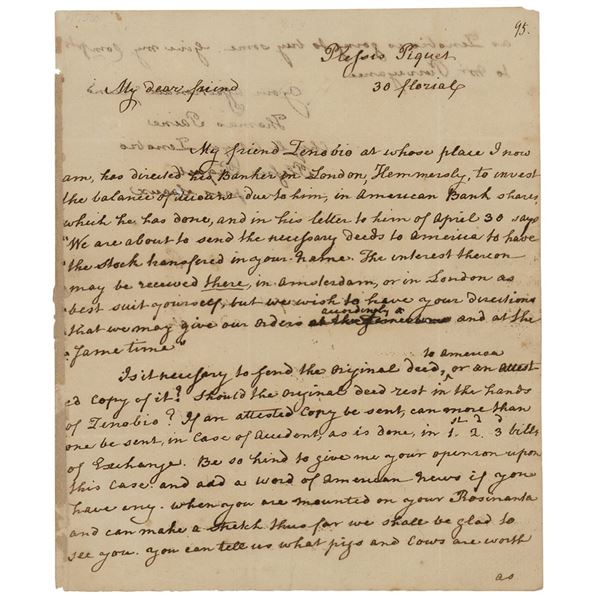 95.
Plessis Piquet
30 florial
My dear friend
My friend Zenobio at whose place I now
am, has directed his Banker in London, Hemmersly, to invest
the balance of account due to him, in American Bank shares,
which he has done, and in his letter to him of April 30 says
"We are about to send the necessary deeds to America to have
"the stock transfered in your name. The interest thereon
"may be received there, in Amsterdam, or in London as
"best suit yourself, but we wish to have your directions
accordingly
"that we may give our orders at the same and at the
"same time"
to america
Is it necessary to send the original deed, or an attest
ed Copy of it? Should the original deed rest in the hands
of Zenobio? If an attested Copy be sent, can more than
one be sent, in Case of Accident, as is done, in 1st. 2d. 3d bills
of Exchange. Be so kind to give me your opinion upon
this Case and add a word of American news if you
have any. when you are mounted on your Rosinanta
and can make a stretch thus far we shall be glad to
see you. you can tell us what pigs and Cows are worth
as
as Zenobio is going to buy some. Give my Compts
to Mr
Thomas Paine
Zenobio